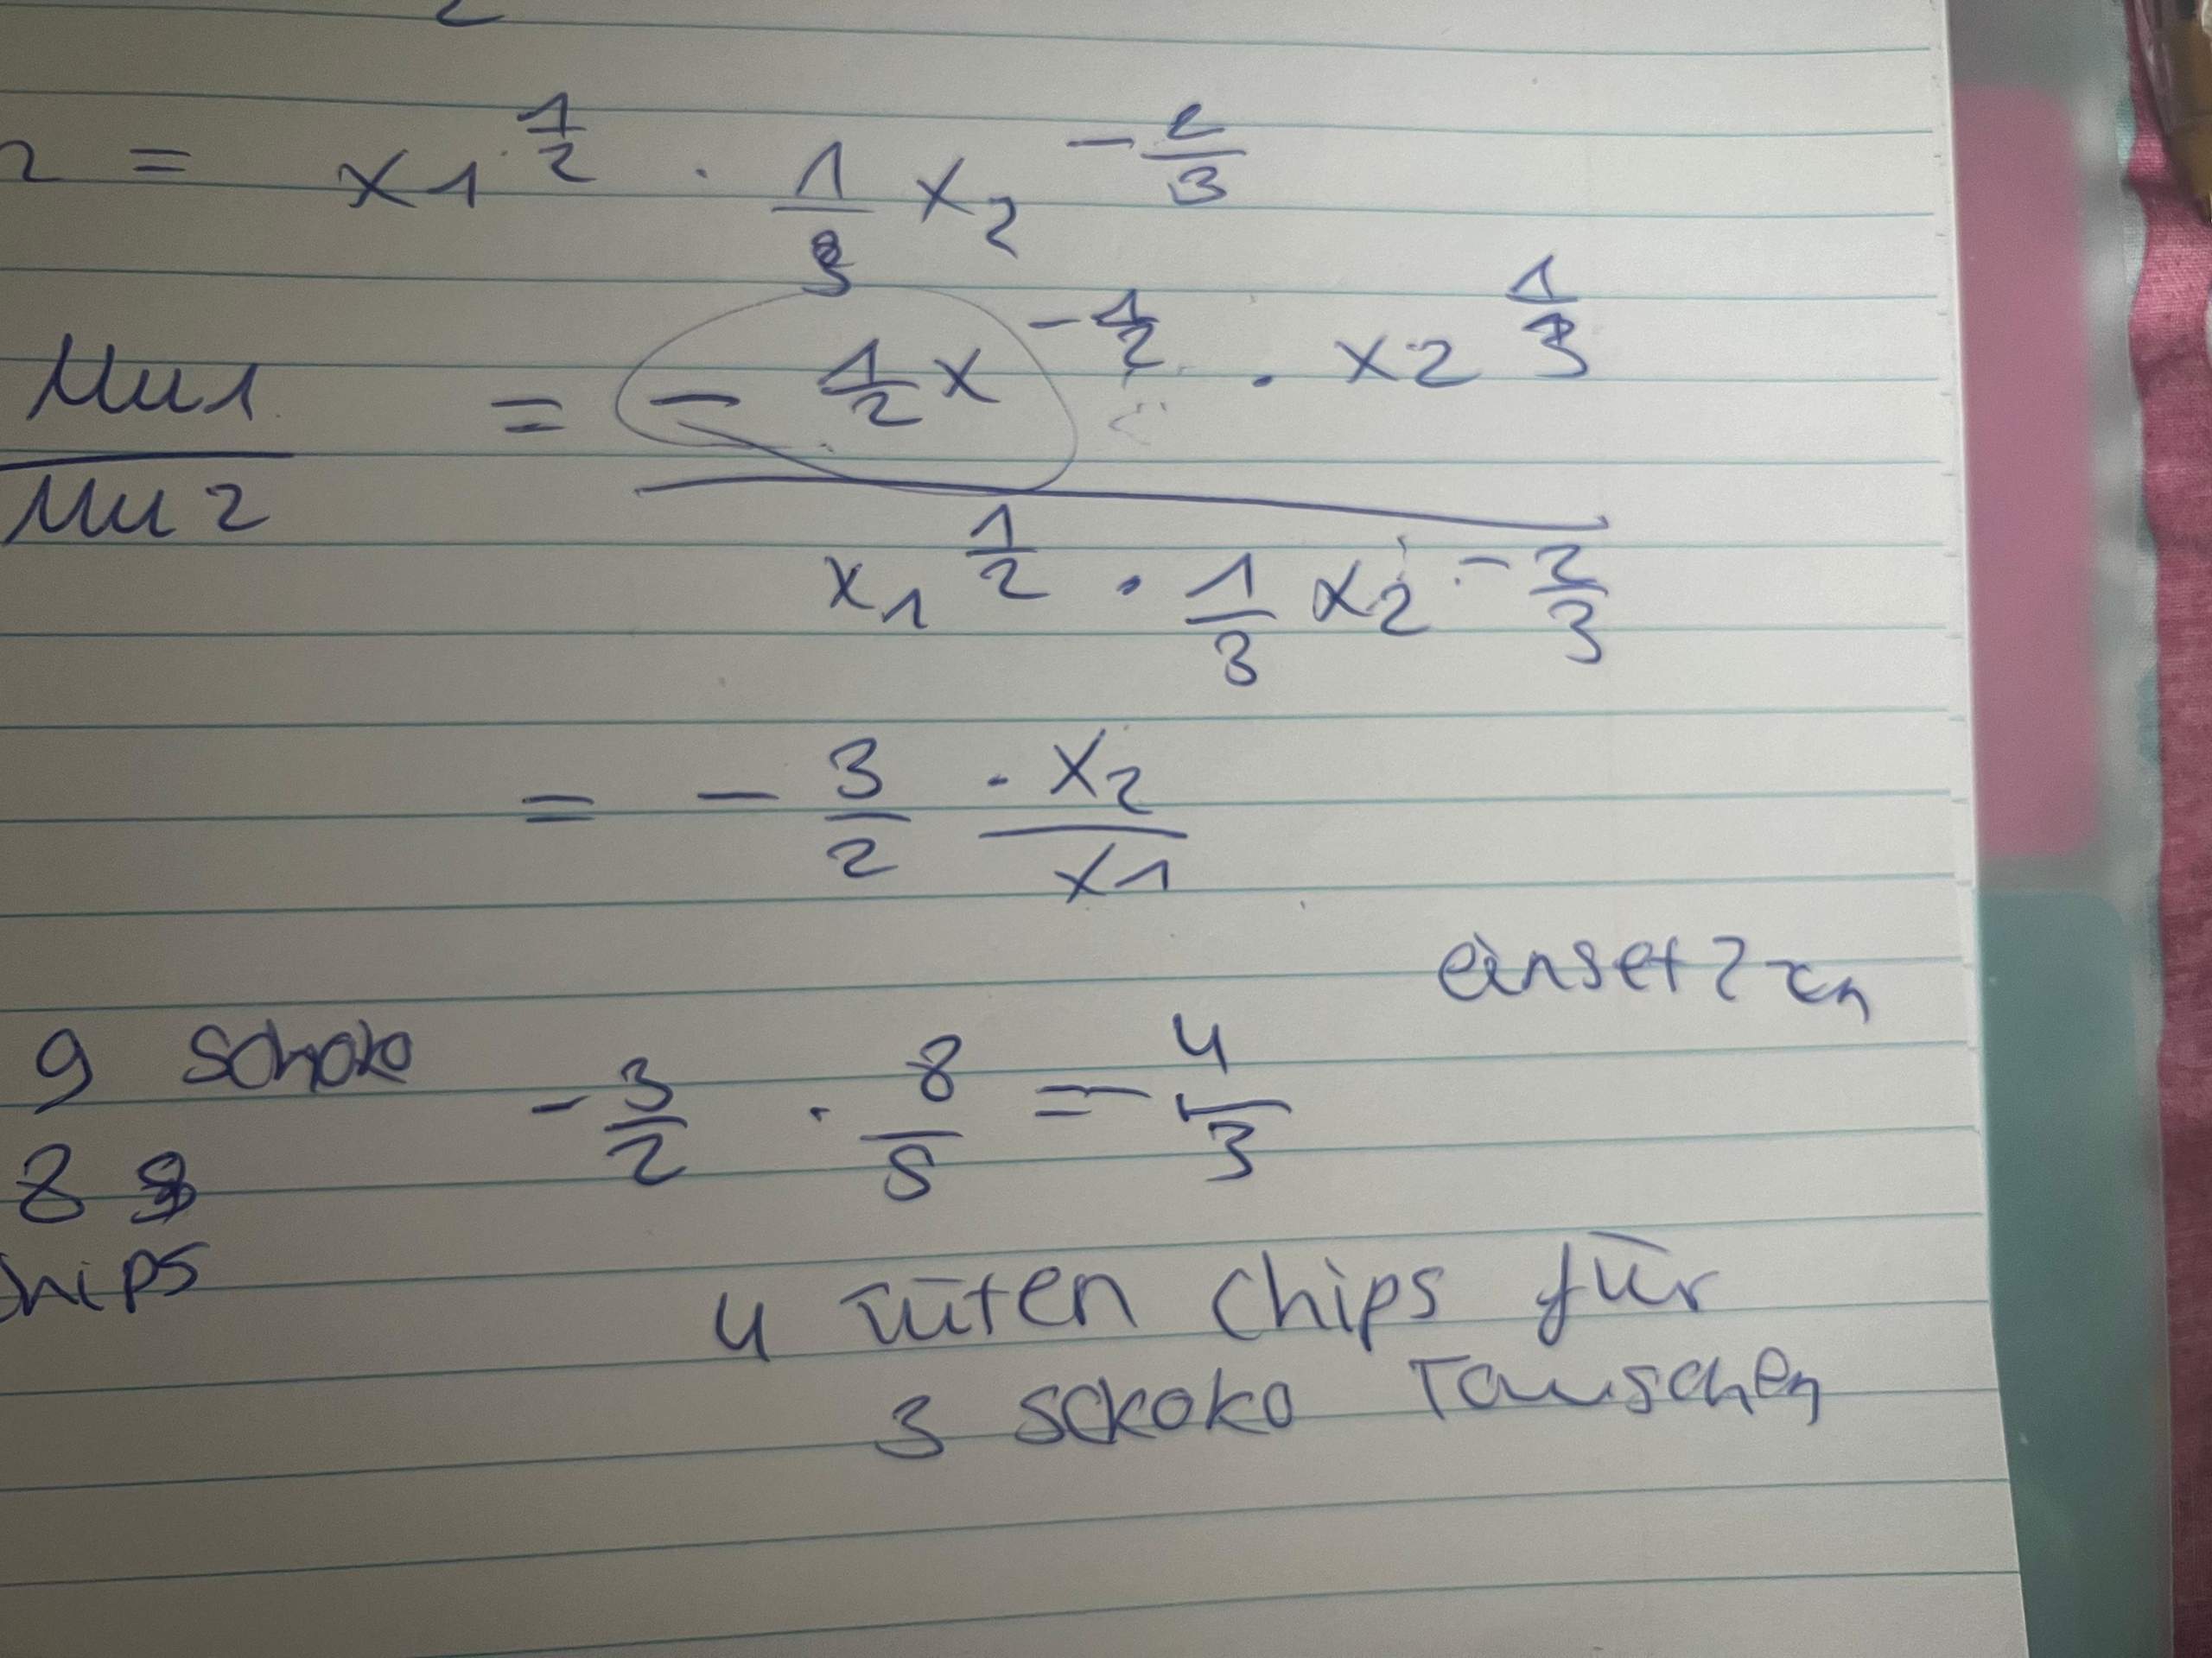 2
2 = x1^1/2 · 1/3 x2^-2/3
Mu1/Mu2 = (- 1/2 x^-1/2 · x2^1/3)/(x1^1/2 · 1/3 x2^-2/3)
= - 3/2 · x2/x1
einsetzen
9 Schoko - 3/2 · 8/9 = - 4/3
8
hips
4 Tüten Chips für
3 Schoko Tauschen